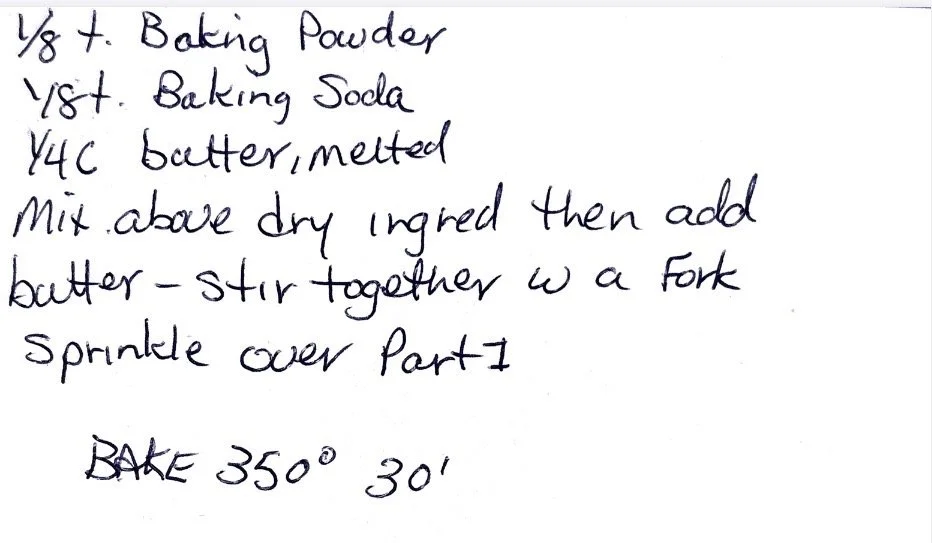 1/8 t. Baking Powder
1/8 t. Baking Soda
1/4 C butter, melted
Mix above dry ingred then add
butter - stir together w a Fork
Sprinkle over Part 1
BAKE 350° 30'